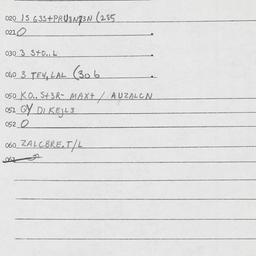 020 IS G3S+PRUSNPSN (285
021 0
030 3 S+0..L
040 3 TEV, LAL (306
050 K0.. S+3R- MAX+ / AUZALCN
051 GY DIKEJL3
052 0
060 ZALCBRE.T/L
061